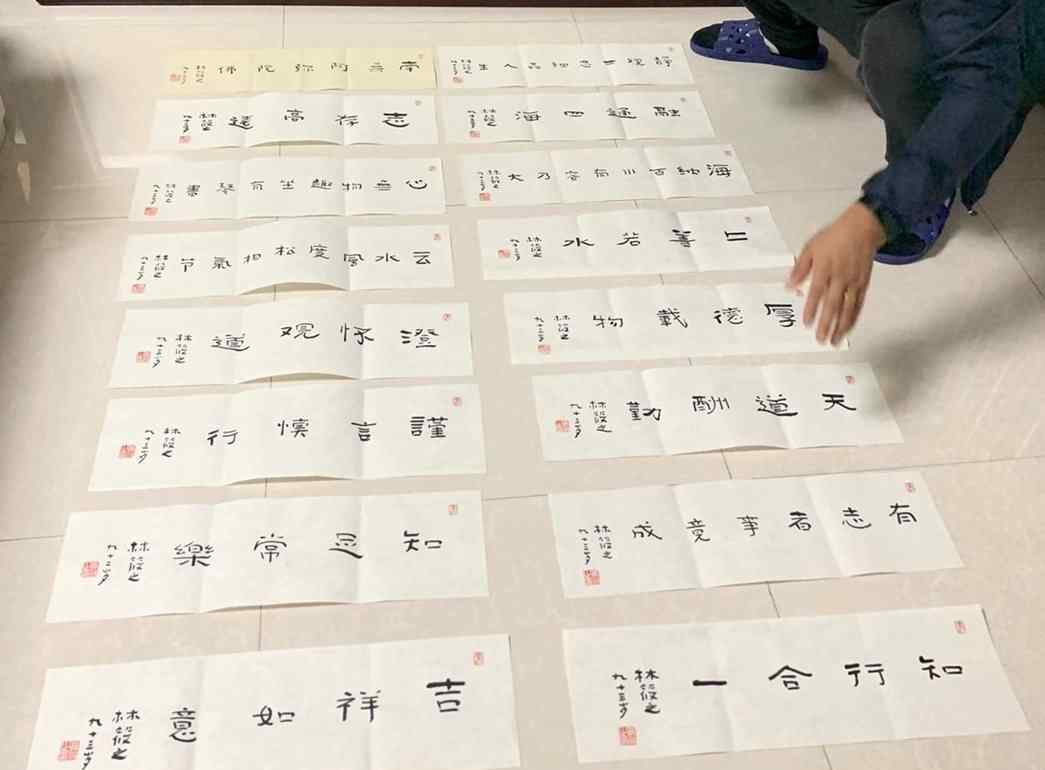 南无阿弥陀佛
林筱之
九十三岁
静观世态细品人生
林筱之
九十三岁
志存高遠
林筱之
九十三岁
融通四海
林筱之
九十三岁
心无物趣坐有琴書
林筱之
九十三岁
海納百川有容乃大
林筱之
九十三岁
云水風度松柏氣节
林筱之
九十三岁
上善若水
林筱之
九十三岁
澄怀观道
林筱之
九十三岁
厚德載物
林筱之
九十三岁
謹言慎行
林筱之
九十三岁
天道酬勤
林筱之
九十三岁
知足常樂
林筱之
九十三岁
有志者事竟成
林筱之
九十三岁
吉祥如意
林筱之
九十三岁
知行合一
林筱之
九十三岁